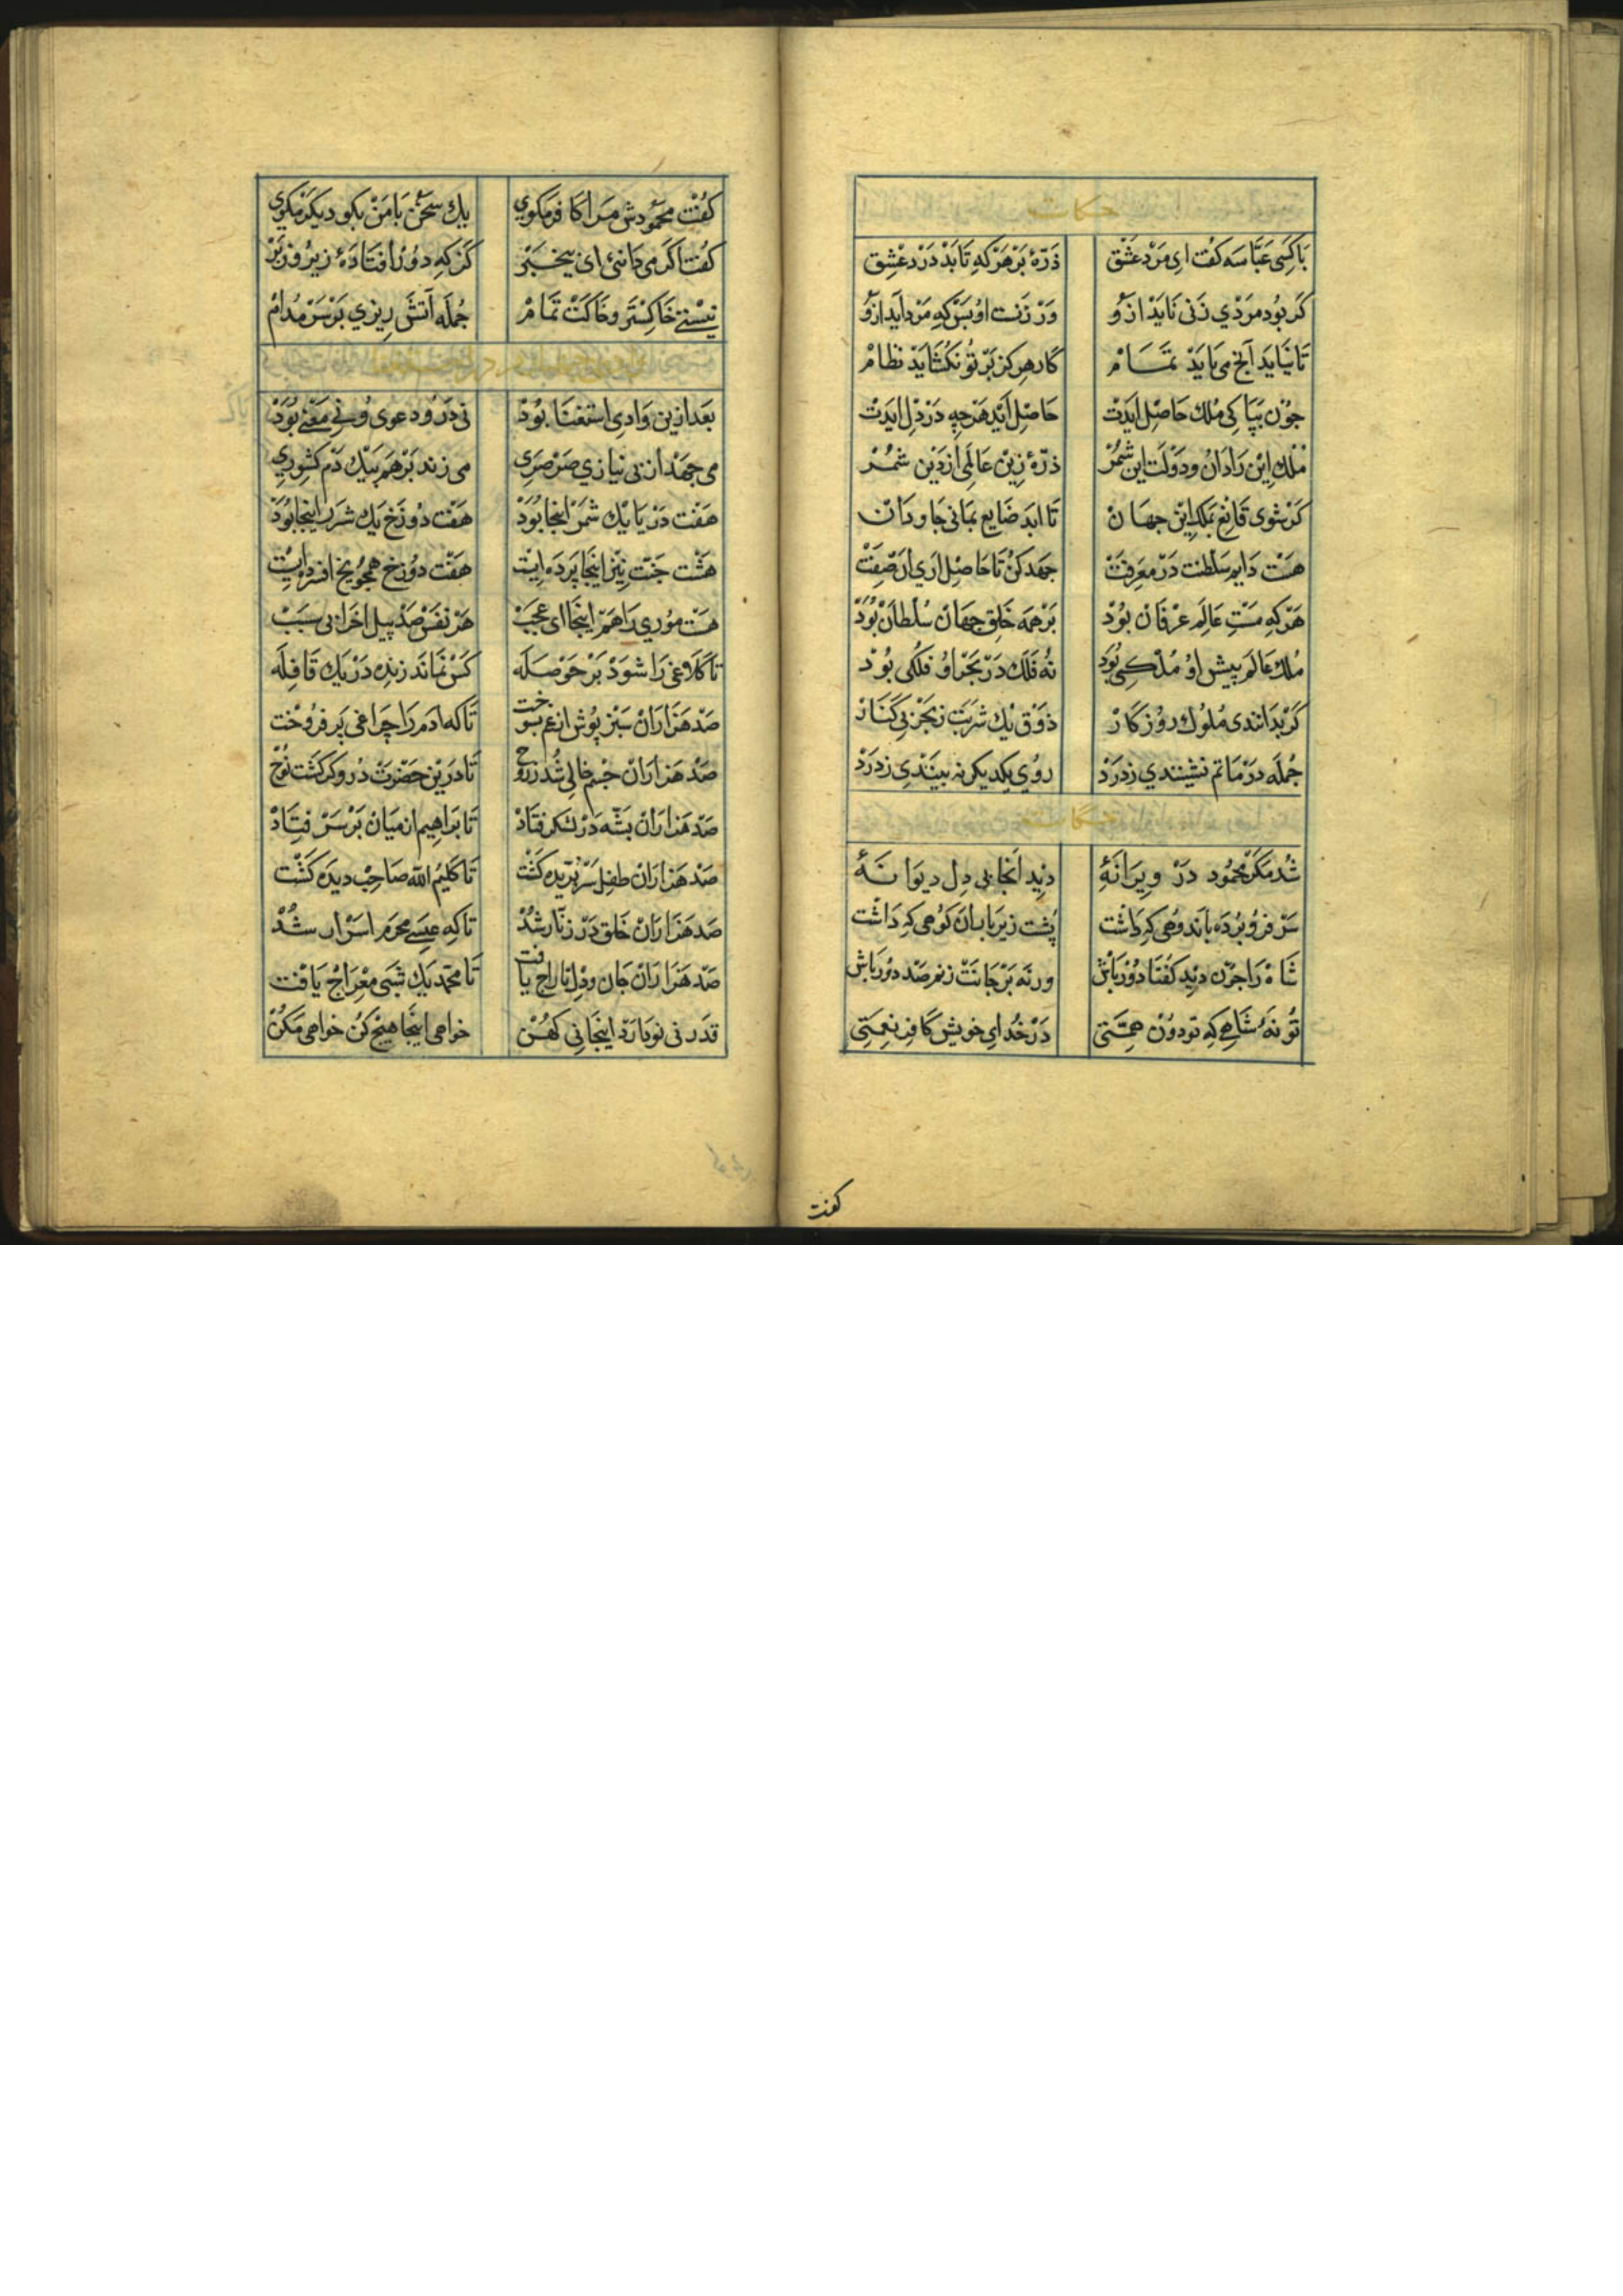 حکایت
باکسی عبّاسه کفت ای مرد عشق ذرّهٔ بر هرکه تابد درد عشق
کر بود مردی زنی زاید ازو ور زنست او بس که مرد آید ازو
تا نیاید آنچ می باید تمام کار هرکز بر تو نکشاید نظام
چون بپاکی ملک حاصل آیدت حاصل آید هرچه در دل آیدت
ملک این را دان و دولت این شمر ذرّهٔ زین عالمی از دین شمر
کر شوی قانع بملک این جهان تا ابد ضایع بمانی جاودان
هست دایم سلطنت در معرفت جهد کن تا حاصل آری آن صفت
هرکه مست عالم عرفان بود بر همه خلق جهان سلطان بود
ملک عالم پیش او ملکی بود نه فلک در بحر او فلکی بود
کر بدانندی ملوک روزکار ذوق یک شربت ز بحر بی کنار
جمله در ماتم نشینندی ز درد روی یکدیکر نه بینندی ز درد
حکایت
شد مکر محمود در ویرانهٔ دید آنجا بی دل دیوانهٔ
سر فرو برده باندوهی که داشت پشت زیر بار آن کوهی که داشت
شاه را چون دید کفتا دورباش ورنه بر جانت زنم صد دورباش
تو نهٔ شاهی که تو دون همّتی در خدای خویش کافر نعمتی
کفت
کفت محمودش مرا کافر مکوی یک سخن با من بکو دیکر مکوی
کفت اکر می دانیی ای بیخبر کز که دور افتادهٔ زیر و زبر
نیستی خاکستر و خاکت تمام جمله آتش ریزی بر سر مدام
بعد ازین وادی استغنا بود نی درو دعوی و نی معنی بود
می جهد از بی نیازی صرصری می زند بر هم بیک دم کشوری
هفت دریا یک شمر اینجا بود هفت دوزخ یک شرر اینجا بود
هشت جنّت نیز اینجا پرده ایست هفت دوزخ همچو یخ افسرده ایست
هست موری را هم اینجا ای عجب هر نفس صد پیل اخرا بی سبب
تا کلاغی را شود پر حوصله کس نماند زنده در یک قافله
صد هزاران سبز پوش از غم بسوخت تا که آدم را چراغی بر فروخت
صد هزاران جسم خالی شد ز روح تا درین حضرت دروکر کشت نوح
صد هزاران پشّه در لشکر فتاد تا براهیم از میان بر سر فتاد
صد هزاران طفل سر بریده کشت تا کلیم الله صاحب دیده کشت
صد هزاران خلق در زنّار شد تا که عیسی محرم اسرار شد
صد هزاران جان و دل تاراج یافت تا محمّد یک شبی معراج یافت
قدر نی نو دارد اینجا نی کهن خواهی اینجا هیچ کن خواهی مکن